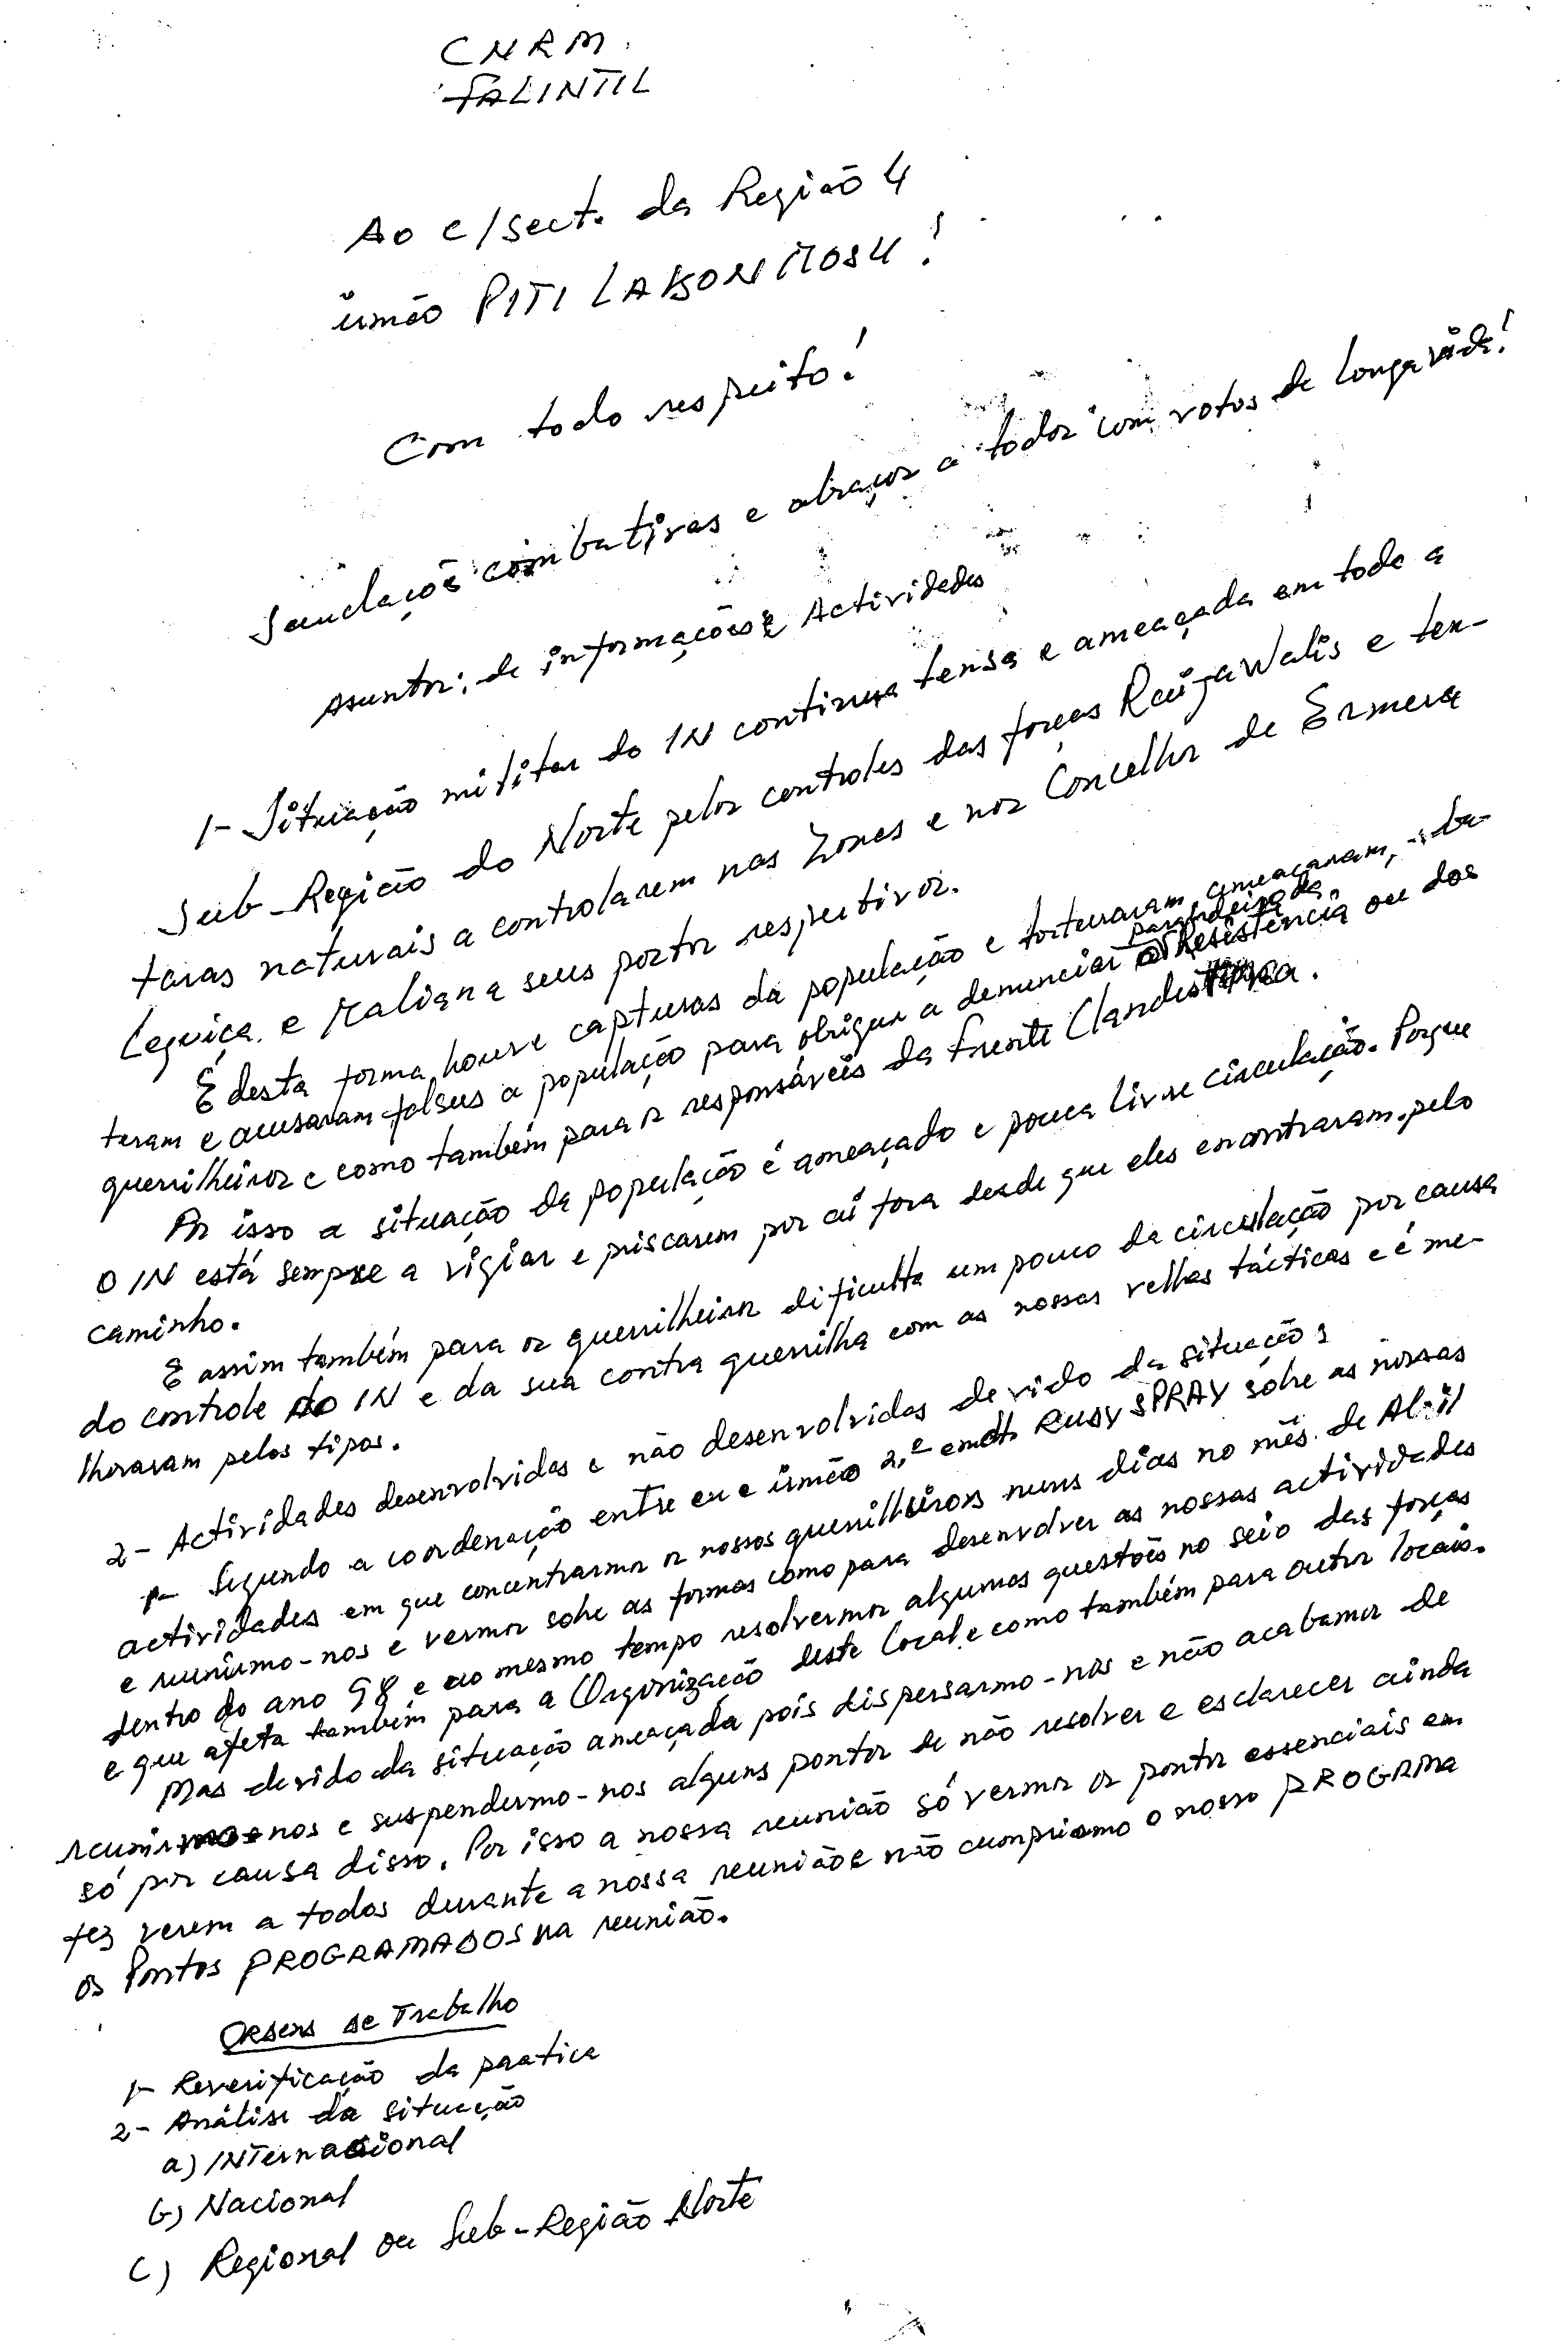 CNRM.
FALINTIL
Ao c/sect. da Região 4
irmão PITI LABON MOSU!
Com todo respeito!
Saudaçõe combativas e abraços a todos com votos de longa vida!
Asuntos: de informações e Actividades
1- Situação militar do IN continua tensa e ameaçada em toda a
Sub-Região do Norte pelos controles das forças Raijawalis e ten-
taras naturais a controlarem nas Zonas e nos Concelhos de Ermera
Lequiça e Maliana seus postos respectivos.
E desta forma houve capturas da população e torturaram, ameaçaram, ba-
teram e acusaram falsus a população para obrigar a denunciar paradeiro da Resistência ou dos
guerrilheiros e como também para os responsáveis da Frente Clandestina.
Por isso a situação da população é ameaçado e pouca livre circulação. Porque
o IN está sempre a vigiar e priscarem por aí fora desde que eles encontraram pelo
caminho.
E assim também para os guerrilheiros dificulta um pouco da circulação por causa
do controle do IN e da sua contra guerrilha com as nossas velhas tácticas e é me-
lhoraram pelos tipos.
2- Actividades desenvolvidas e não desenvolvidas devido da situação:
1- Segundo a coordenação entre eu e irmão 2.º cmdt. RUSY SPRAY sobre as nossas
actividades em que concentrarmos os nossos guerrilheiros nuns dias no mês de Abril
e reunirmo-nos e vermos sobre as formas como para desenvolver as nossas actividades
dentro do ano 98 e ao mesmo tempo resolvermos algumas questões no seio das forças
e que afeta também para a Organização deste local e como também para outros locais.
Mas devido da situação ameaçada pois dispersarmo-nos e não acabamos de
reunir nos e suspendermo-nos alguns pontos de não resolver e esclarecer ainda
só por causa disso. Por isso a nossa reunião só vermos os pontos essenciais em
fez verem a todos durante a nossa reunião e não cumpriamo o nosso PROGRMA
os Pontos PROGRAMADOS na reunião.
ORDENS DE Trabalho
1- Reverificação da pratica
2- Análise da situação
a) INTernacional
b) Nacional
C) Regional ou Sub-Região Norte